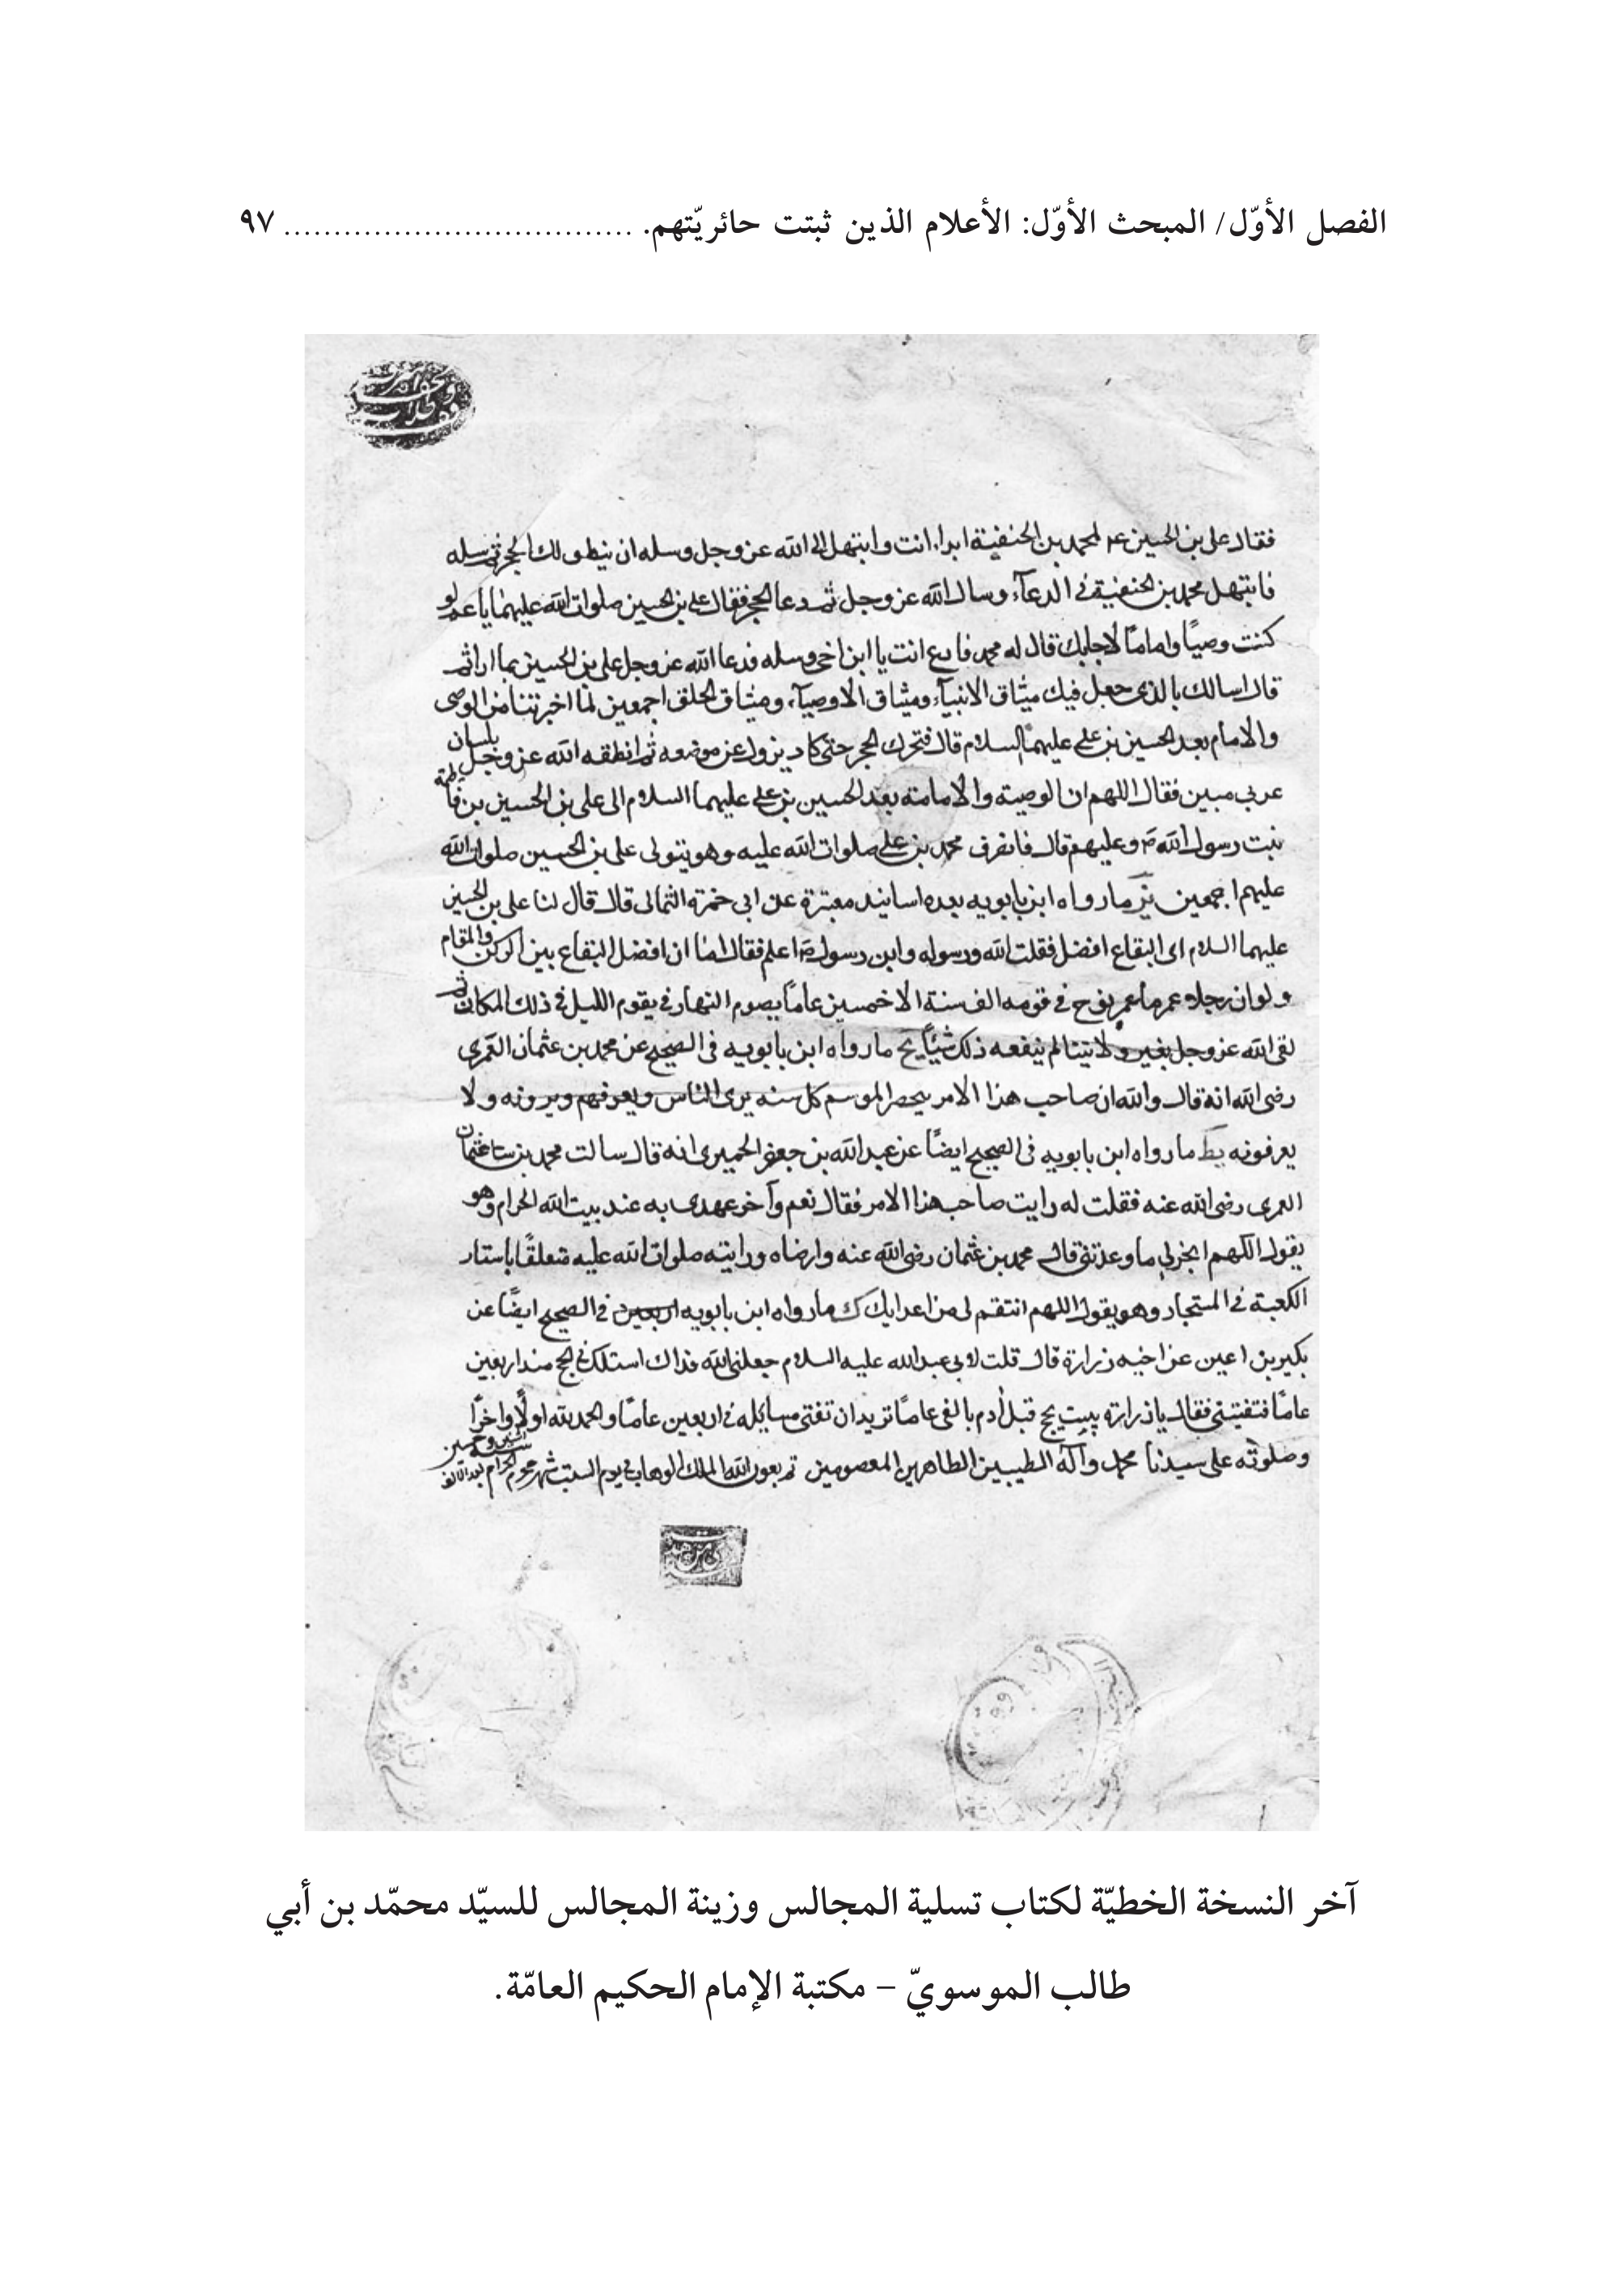 الفصل الأوّل/ المبحث الأوّل: الأعلام الذين ثبتت حائريّتهم. .................................. ٩٧
فقال علي بن الحسين ع لمحمد بن الحنفية ابدا انت وابتهل الى الله عز وجل وسله ان ينطق لك الحجر ثم سله
فابتهل محمد بن الحنفية في الدعآء وسال الله عز وجل ثم دعا الحجر فقال علي بن الحسين صلوات الله عليهما يا عم لو
كنت وصيًا واماما لاجابك قال له محمد فادع انت يا ابن اخي وسله فدعا الله عز وجل علي بن الحسين بما اراد ثم
قال اسالك بالذي جعل فيك ميثاق الانبيآء وميثاق الاوصيآء وميثاق الخلق اجمعين لما اخبرتنا من الوصى
والامام بعد الحسين بن علي عليهما السلام قال فتحرك الحجر حتى كاد يزول عن موضعه ثم انطقه الله عز وجل بلسان
عربي مبين فقال اللهم ان الوصية والامامة بعد الحسين بن علي عليهما السلام الى على بن الحسين بن فاطمة
بنت رسول الله ص وعليهم قال فانصرف محمد بن علي صلوات الله عليه وهو يتولى على بن الحسين صلوات الله
عليهم اجمعين يز ما رواه ابن بابويه بعده اسانيد معتبرة عن ابي حمزة الثمالى قال قال لنا على بن الحسين
عليهما السلام اى البقاع افضل فقلت الله ورسوله وابن رسوله اعلم فقال اما ان افضل البقاع بين الركن والمقام
ولو ان رجلا عمر ما عمر نوح في قومه الف سنة الا خمسين عامًا يصوم النهار ويقوم الليل في ذلك المكان ثم
لقى الله عز وجل بغير ولايتنا لم ينفعه ذلك شيئًا يح ما رواه ابن بابويه فى الصحيح عن محمد بن عثمان العمرى
رضى الله انه قال والله ان صاحب هذا الامر يحضر الموسم كل سنه يرى الناس ويعرفهم ويرونه ولا
يعرفونه يط ما رواه ابن بابويه فى الصحيح ايضًا عن عبد الله بن جعفر الحميرى انه قال سالت محمد بن عثمان
العمرى رضى الله عنه فقلت له رايت صاحب هذا الامر فقال نعم وآخر عهدى به عند بيت الله الحرام وهو
يقول اللهم انجز لي ما وعدتني قال محمد بن عثمان رضى الله عنه وارضاه ورايته صلوات الله عليه متعلقًا باستار
الكعبة في المستجار وهو يقول اللهم انتقم لى من اعدايك ك ما رواه ابن بابويه في الصحيح ايضًا عن
بكير بن اعين عن اخيه زرارة قال قلت لابي عبد الله عليه السلام جعلني الله فداك اسئلك في الحج منذ اربعين
عامًا فتفتيني فقال يا زرارة بيت يحج قبل آدم بالفي عامًا تريد ان تفتى مسايله في اربعين عامًا والحمد لله اولًا واخرًا
وصلوته على سيدنا محمد وآله الطيبين الطاهرين المعصومين تم بعون الله الملك الوهاب في يوم السبت شهر محرم الحرام
آخر النسخة الخطيّة لكتاب تسلية المجالس وزينة المجالس للسيّد محمّد بن أبي
طالب الموسويّ – مكتبة الإمام الحكيم العامّة.